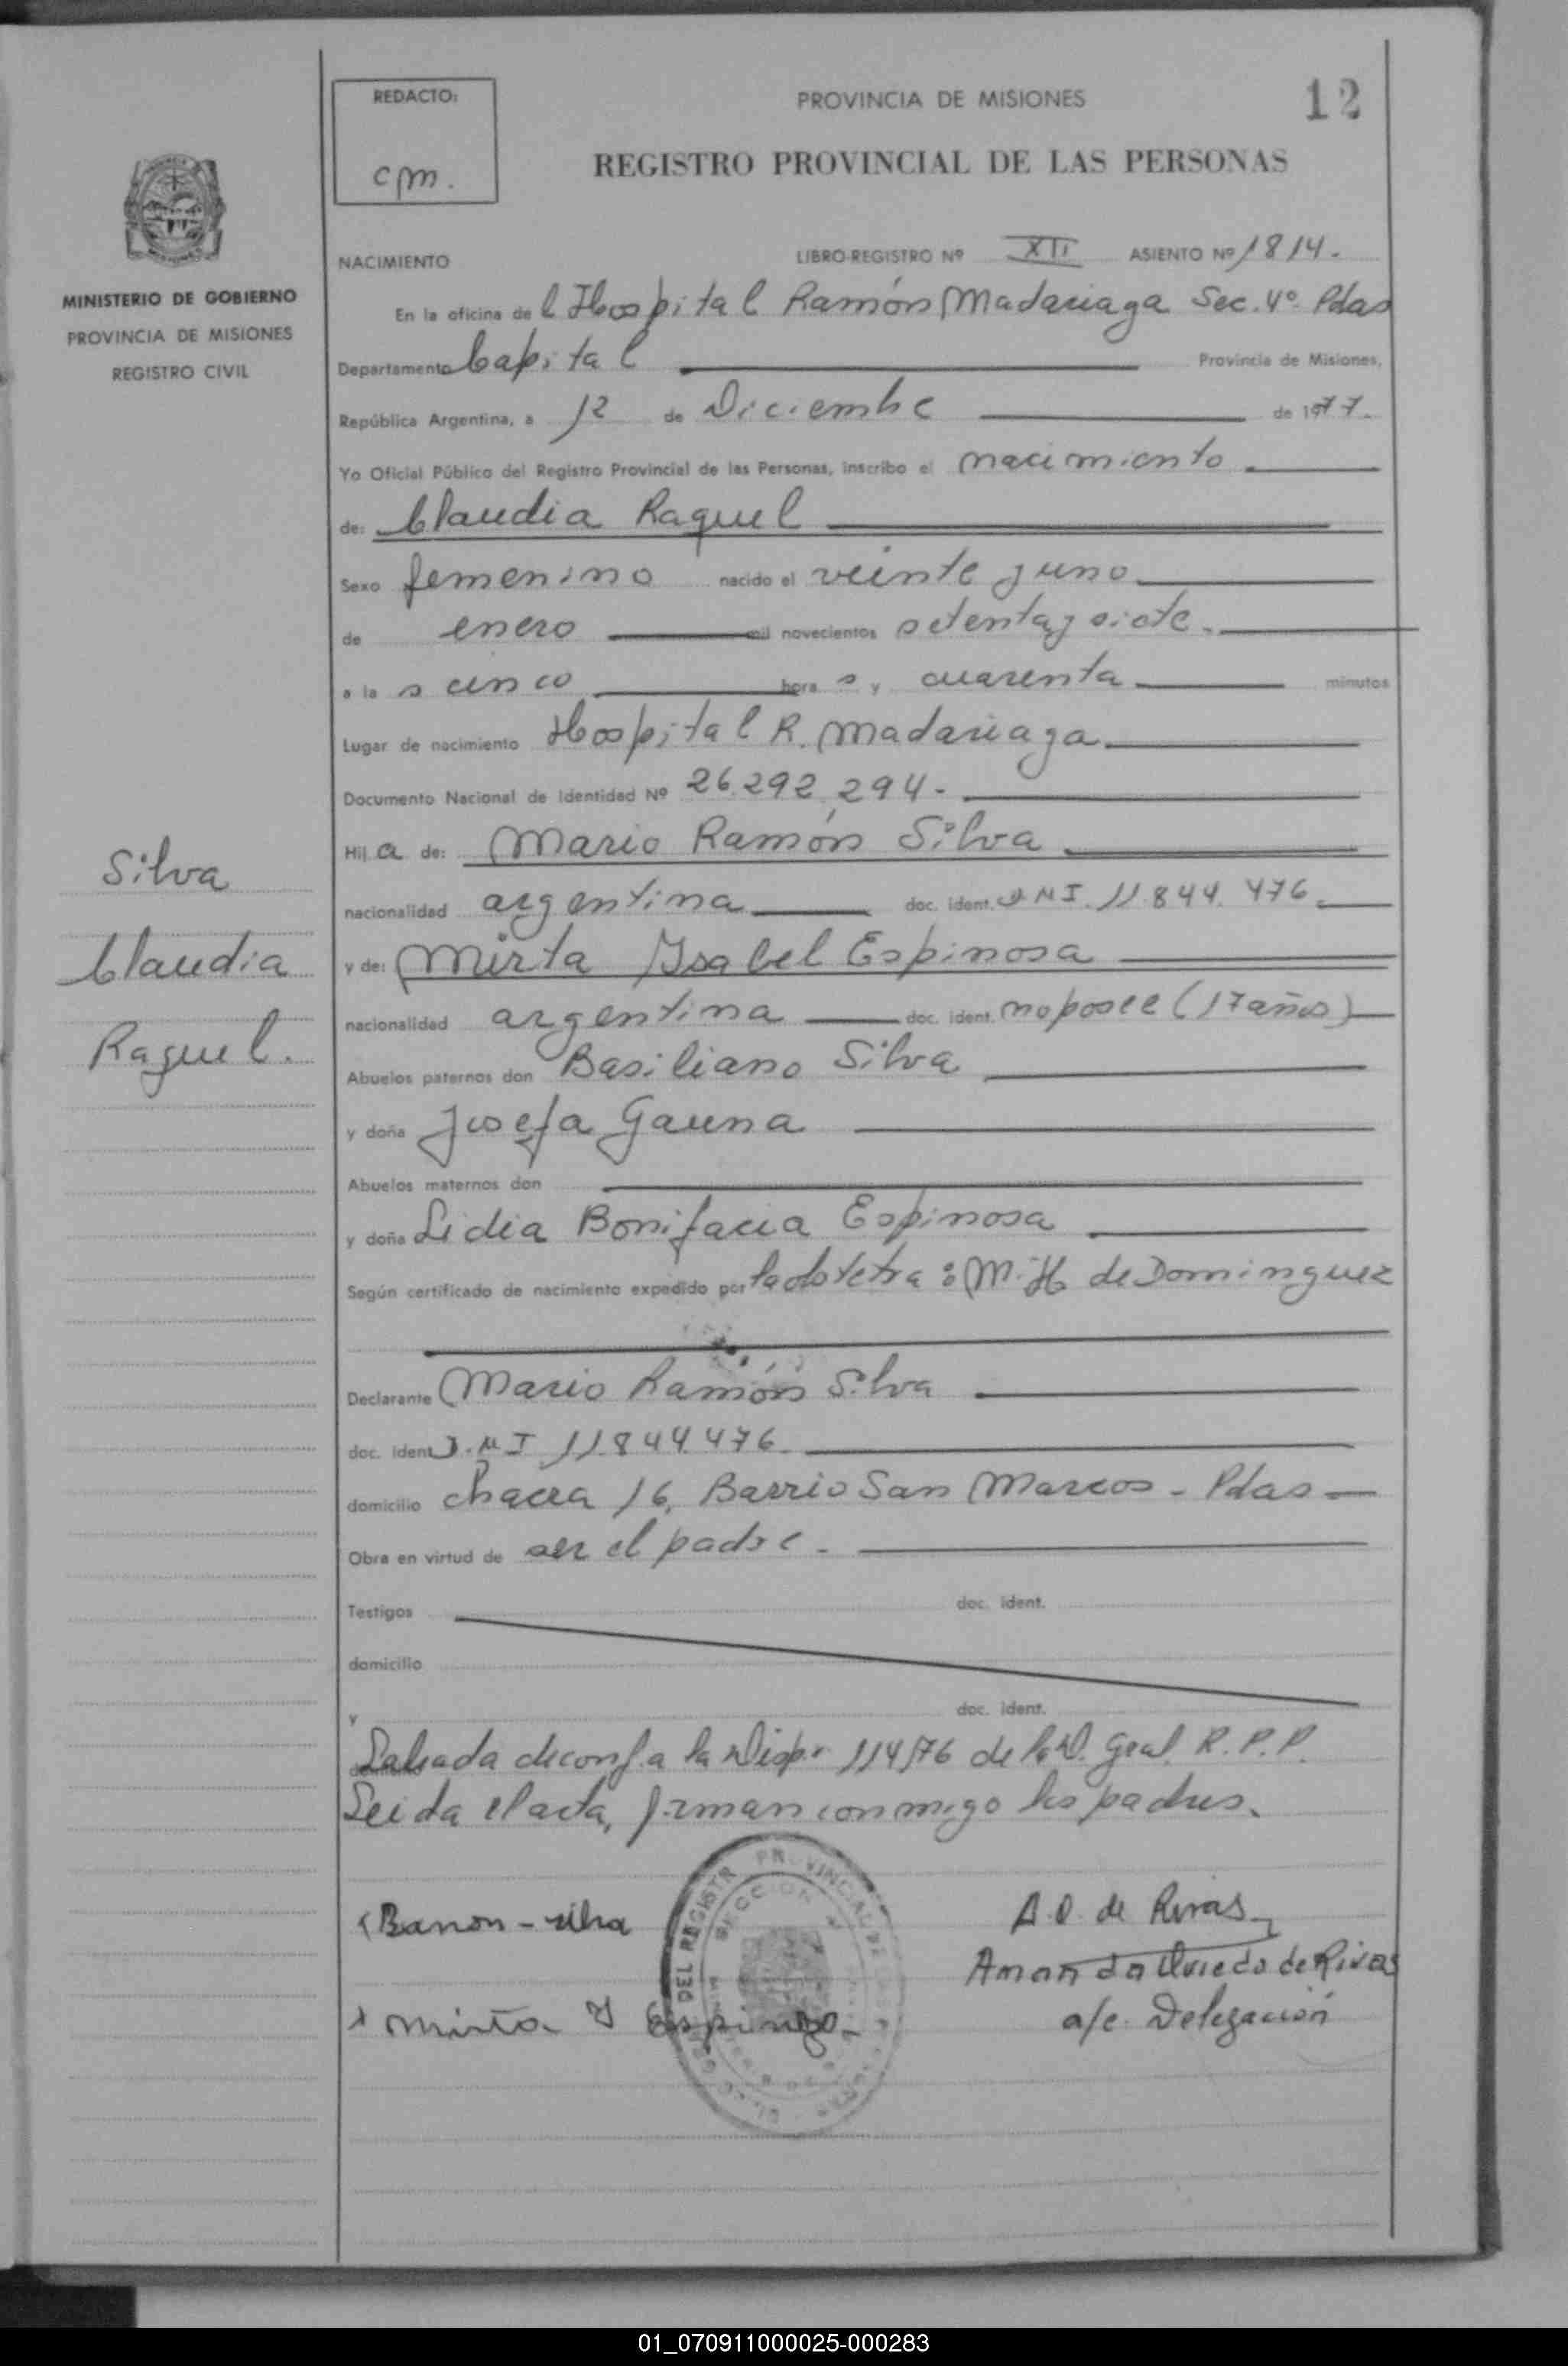 REDACTO:
cpm.
PROVINCIA DE MISIONES
12
REGISTRO PROVINCIAL DE LAS PERSONAS
MINISTERIO DE GOBIERNO
PROVINCIA DE MISIONES
REGISTRO CIVIL
Silva
Claudia
Raquel.
NACIMIENTO LIBRO-REGISTRO Nº XII ASIENTO Nº 1814.
En la oficina de l Hospital Ramón Madariaga Sec. 4º Pdas
Departamento Capital Provincia de Misiones,
República Argentina, a 12 de Diciembre de 1977.
Yo Oficial Público del Registro Provincial de las Personas, inscribo el nacimiento
de: Claudia Raquel
Sexo femenino nacido el veinte y uno
de enero mil novecientos setenta y siete.
a la s cinco hora s y cuarenta minutos
Lugar de nacimiento Hospital R. Madariaga.
Documento Nacional de Identidad Nº 26.292.294.-
Hij a de: Mario Ramón Silva
nacionalidad argentina doc. ident. D.N.I. 11.844.476.
y de: Mirta Ysabel Espinosa
nacionalidad argentina doc. ident. no posee (17 años)
Abuelos paternos don Basiliano Silva
y doña Josefa Gauna
Abuelos maternos don
y doña Lidia Bonifacia Espinosa
Según certificado de nacimiento expedido por la obstetra: M. H. de Dominguez
Declarante Mario Ramón Silva
doc. ident. D.N.I 11.844.476.
domicilio chacra 16, Barrio San Marcos - Pdas
Obra en virtud de ser el padre.
Testigos doc. ident.
domicilio
y doc. ident.
Labrada de conf. a la Disp. 114/76 de la D. Gral. R.P.P.
Leida el acta, firman conmigo los padres.
Ramon - silva
A.O. de Rivas
Amanda Oviedo de Rivas
Mirta Y Espinoza
a/c. Delegación
01_070911000025-000283